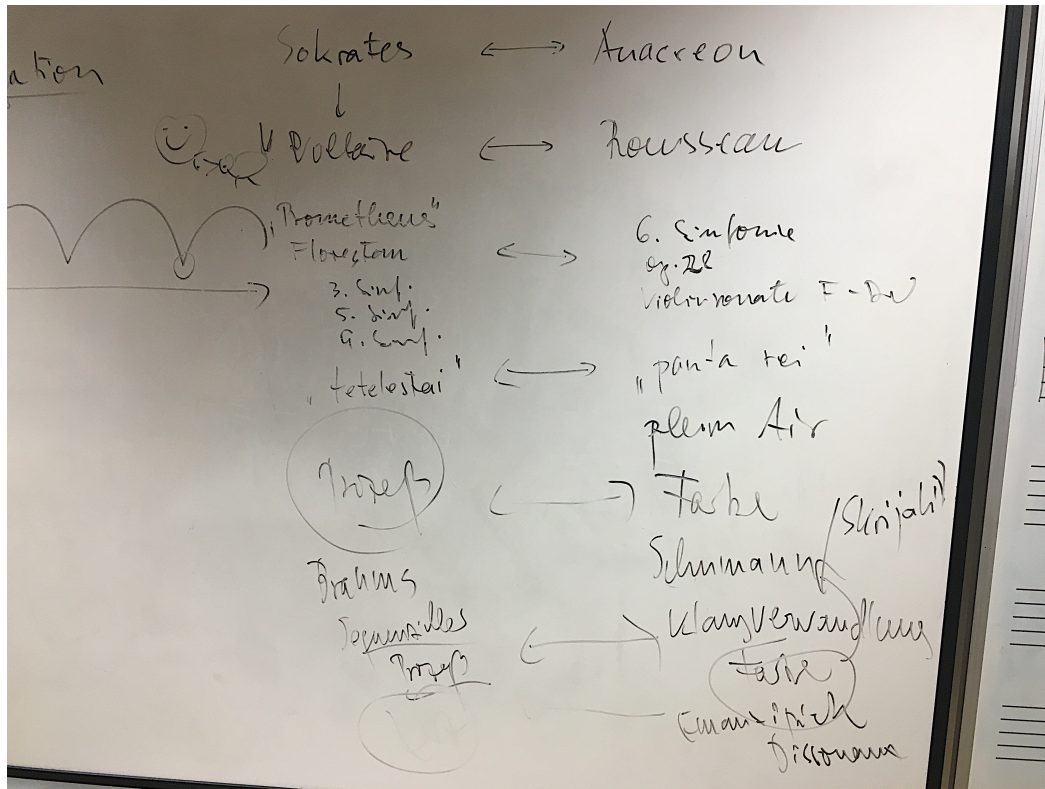 ation
Sokrates ↔ Anacreon
↓
Voltaire ↔ Rousseau
"Prometheus"
Florestan ↔ 6. Sinfonie
op. 22
3. Sinf. Violinsonate F-Dur
5. Sinf.
9. Sinf.
„tetelestai" ↔ „panta rei"
plein Air
Prozeß ↔ Farbe
(Skrjabin)
Brahms Schumann
Sequenzielles ↔ Klangverwandlung
Prozeß Farbe
Dissonanz